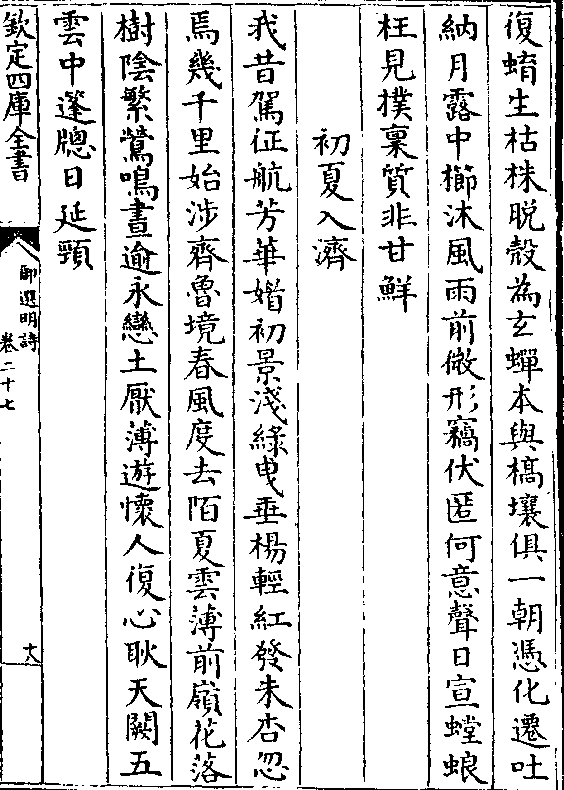 復蜟生枯株脱殼為玄蟬本與槁壤俱一朝憑化遷吐
納月露中櫛沐風雨前微形竊伏匿何意聲日宣螳蜋
枉見撲稟質非甘鮮
初夏入濟
我昔駕征航芳華媘初景淺綠曳垂楊輕紅發未杏忽
焉幾千里始涉齊魯境春風度去陌夏雲薄前嶺花落
樹陰繁鶯鳴晝逾永戀土厭薄遊懷人復心耿天闕五
雲中蓬牕日延頸
欽定四庫全書
御選明詩
卷二十七
十八